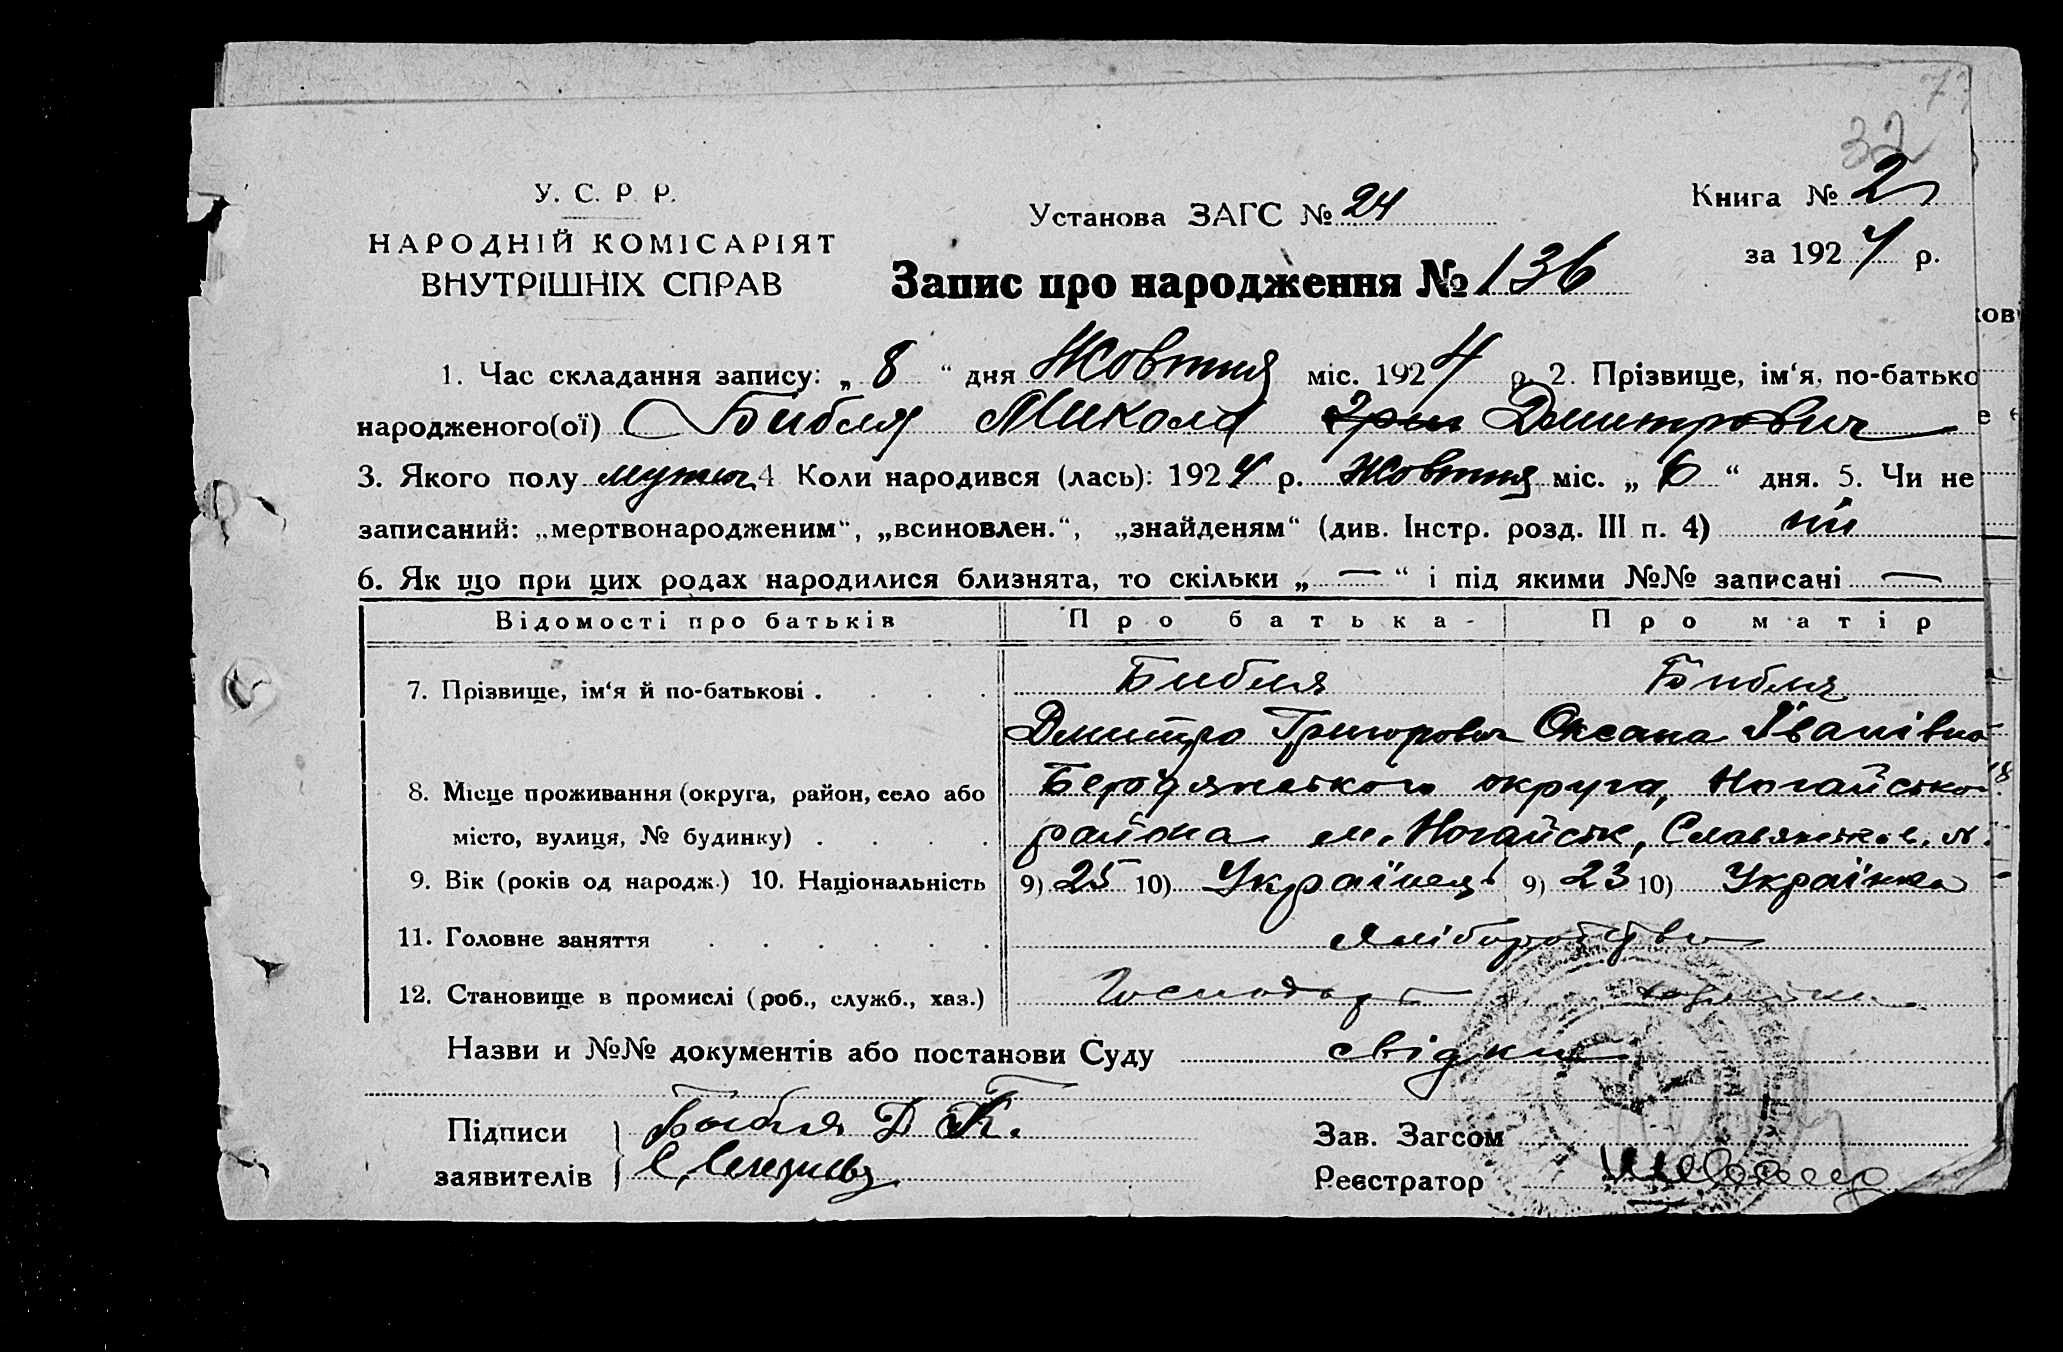 7
32
У. С. Р. Р.
НАРОДНІЙ КОМІСАРІЯТ
ВНУТРІШНІХ СПРАВ
Установа ЗАГС № 24
Книга № 2
за 1924 р.
Запис про народження № 136
1. Час складання запису: „ 8 “ дня Жовтня міс. 1924 р. 2. Прізвище, ім'я, по-батько
народженого(ої) Библя Микола Дмитрович
3. Якого полу мужск 4 Коли народився (лась): 1924 р. Жовтня міс. „ 6 “ дня. 5. Чи не
записаний: „мертвонародженим“, „всиновлен.“, „знайденям“ (див. Інстр. розд. III п. 4) ні
6. Як що при цих родах народилися близнята, то скільки „ — “ і під якими №№ записані —
Відомості про батьків Про батька Про матір
7. Прізвище, ім'я й по-батькові . . . . Библя Библя
Дмитро Григорович Оксана Іванівна
8. Місце проживання (округа, район, село або Бердянського округа, Ногайського
місто, вулиця, № будинку) . . . . района м. Ногайськ,
9. Вік (років од народж.) 10. Національність 9) 25 10) Українець 9) 23 10) Українка
11. Головне заняття . . . . . . Хліборобство
12. Становище в промислі (роб., служб., хаз.) Господарь
Назви и №№ документів або постанови Суду свідки
Підписи Библя Д Г.
заявителів
Зав. Загсом
Реєстратор